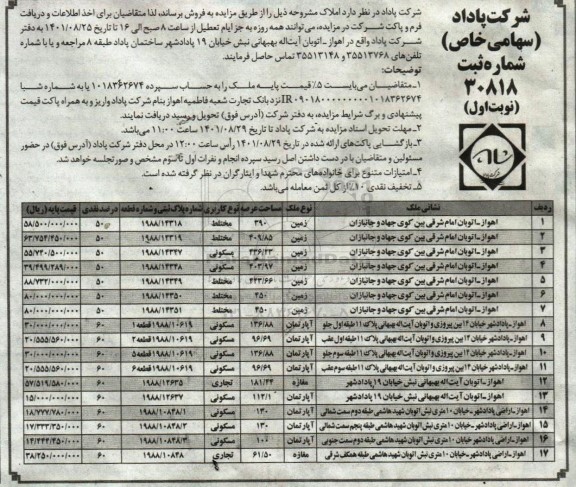 شرکت پاداد
(سهامی خاص)
شماره ثبت
۳۰۸۱۸
(نوبت اول)
شرکت پاداد در نظر دارد املاک مشروحه ذیل را از طریق مزایده به فروش برساند، لذا متقاضیان برای اخذ اطلاعات و دریافت
فرم و پاکت شرکت در مزایده، می‌توانند همه روزه به جز ایام تعطیل از ساعت ۸ صبح الی ۱۶ تا تاریخ ۱۴۰۱/۰۸/۲۵ به دفتر
شرکت پاداد واقع در اهواز ـ اتوبان آیت‌اله بهبهانی نبش خیابان ۱۹ پادادشهر ساختمان پاداد طبقه ۸ مراجعه و یا با شماره
تلفن‌های ۳۵۵۱۳۷۶۸ و ۳۵۵۱۳۱۴۸ تماس حاصل فرمایند.
توضیحات:
۱ـ متقاضیان می‌بایست ۵٪ قیمت پایه ملک را به حساب سپرده ۱۰۱۸۳۶۲۶۷۴ به شماره شبا
نزد بانک تجارت شعبه فاطمیه اهواز بنام شرکت پاداد واریز و به همراه پاکت قیمت
پیشنهادی و برگ شرایط مزایده، به دفتر شرکت (آدرس فوق) تحویل و رسید دریافت نمایند.
۲ـ مهلت تحویل اسناد مزایده به شرکت پاداد تا تاریخ ۱۴۰۱/۰۸/۲۹ ساعت ۱۱:۰۰ می‌باشد.
۳ـ بازگشایی پاکت‌های ارائه شده در تاریخ ۱۴۰۱/۰۸/۲۹ رأس ساعت ۱۲:۰۰ در محل دفتر شرکت پاداد (آدرس فوق) در حضور
مسئولین و متقاضیان با در دست داشتن اصل رسید سپرده انجام و نفرات اول تا سوم مشخص و صورتجلسه خواهد شد.
۴ـ امتیازات متنوع برای خانواده‌های محترم شهدا و ایثارگران در نظر گرفته شده است.
۵ـ تخفیف نقدی ۱۰٪ از کل ثمن معامله می‌باشد.
ردیف نشانی ملک نوع ملک مساحت عرصه نوع کاربری شماره پلاک ثبتی و شماره قطعه درصد نقدی قیمت پایه (ریال)
۱ اهواز ـ اتوبان امام شرقی بین کوی جهاد و جانبازان زمین ۳۹۰ مختلط ۱۹۸۸/۱۴۳۱۸ ۵۰ ۵۸/۵۰۰/۰۰۰/۰۰۰
۲ اهواز ـ اتوبان امام شرقی بین کوی جهاد و جانبازان زمین ۴۰۹/۸۵ مختلط ۱۹۸۸/۱۴۳۱۹ ۵۰
۳ اهواز ـ اتوبان امام شرقی بین کوی جهاد و جانبازان زمین مسکونی ۱۹۸۸/۱۴۳۴۷ ۵۰
۴ اهواز ـ اتوبان امام شرقی بین کوی جهاد و جانبازان زمین ۳۰۳/۹۷ مسکونی ۱۹۸۸/۱۴۳۴۸ ۵۰
۵ اهواز ـ اتوبان امام شرقی بین کوی جهاد و جانبازان زمین ۴۴۳/۶۶ مختلط ۱۹۸۸/۱۴۳۴۹ ۵۰
۶ اهواز ـ اتوبان امام شرقی بین کوی جهاد و جانبازان زمین ۴۵۰ مختلط ۱۹۸۸/۱۴۳۵۰ ۵۰
۷ اهواز ـ اتوبان امام شرقی بین کوی جهاد و جانبازان زمین ۴۵۰ مختلط ۱۹۸۸/۱۴۳۵۱ ۵۰
۸ اهواز ـ پادادشهر خیابان ۱۲ بین پیروزی و اتوبان آیت‌اله بهبهانی پلاک ۱۱ طبقه اول جلو آپارتمان ۱۳۶/۸۸ مسکونی ۱۹۸۸/۱۰۶۱۹ قطعه ۱ ۶۰
۹ اهواز ـ پادادشهر خیابان ۱۲ بین پیروزی و اتوبان آیت‌اله بهبهانی پلاک ۱۱ طبقه اول عقب آپارتمان ۹۶/۶۹ مسکونی ۱۹۸۸/۱۰۶۱۹ قطعه ۲ ۶۰
۱۰ اهواز ـ پادادشهر خیابان ۱۲ بین پیروزی و اتوبان آیت‌اله بهبهانی پلاک ۱۱ طبقه سوم جلو آپارتمان ۱۳۶/۸۸ مسکونی ۱۹۸۸/۱۰۶۱۹ قطعه ۵ ۶۰
۱۱ اهواز ـ پادادشهر خیابان ۱۲ بین پیروزی و اتوبان آیت‌اله بهبهانی پلاک ۱۱ طبقه سوم عقب آپارتمان ۹۶/۶۹ مسکونی ۱۹۸۸/۱۰۶۱۹ قطعه ۶ ۶۰
۱۲ اهواز ـ اتوبان آیت‌اله بهبهانی نبش خیابان ۱۹ پادادشهر مغازه ۱۸۱/۴۴ تجاری ۱۹۸۸/۱۲۶۳۵ ۶۰
۱۳ اهواز ـ اتوبان آیت‌اله بهبهانی نبش خیابان ۱۹ پادادشهر آپارتمان ۱۱۲/۱ مسکونی ۱۹۸۸/۱۲۶۳۷ ۶۰
۱۴ اهواز ـ اراضی پادادشهر ـ خیابان ۱۰ متری نبش اتوبان شهید هاشمی طبقه دوم سمت شمالی آپارتمان ۱۳۰ مسکونی ۱۹۸۸/۱۰۸۴۸/۱ ۶۰
۱۵ اهواز ـ اراضی پادادشهر ـ خیابان ۱۰ متری نبش اتوبان شهید هاشمی طبقه پنجم سمت شمالی آپارتمان ۱۳۰ مسکونی ۱۹۸۸/۱۰۸۴۸/۲ ۶۰
۱۶ اهواز ـ اراضی پادادشهر ـ خیابان ۱۰ متری نبش اتوبان شهید هاشمی طبقه دوم سمت جنوبی آپارتمان ۱۰۰ مسکونی ۱۹۸۸/۱۰۸۴۸/۳ ۶۰
۱۷ اهواز ـ اراضی پادادشهر ـ خیابان ۱۰ متری نبش اتوبان شهید هاشمی طبقه همکف شرقی مغازه ۶۱/۵۰ تجاری ۱۹۸۸/۱۰۸۴۸ ۶۰ ۳۸/۲۵۰/۰۰۰/۰۰۰